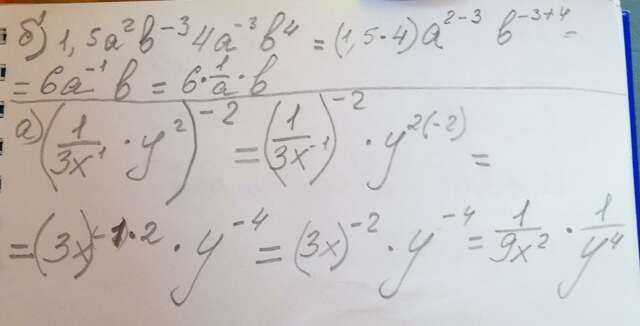 б) 1,5a²b⁻³4a⁻³b⁴ = (1,5·4)a²⁻³ b⁻³⁺⁴ =
= 6a⁻¹b = 6·1/a·b
а) (1/3x¹ · y²)⁻² = (1/3x⁻¹)⁻² · y²⁽⁻²⁾ =
= (3x)⁻¹·² · y⁻⁴ = (3x)⁻² · y⁻⁴ = 1/9x² · 1/y⁴